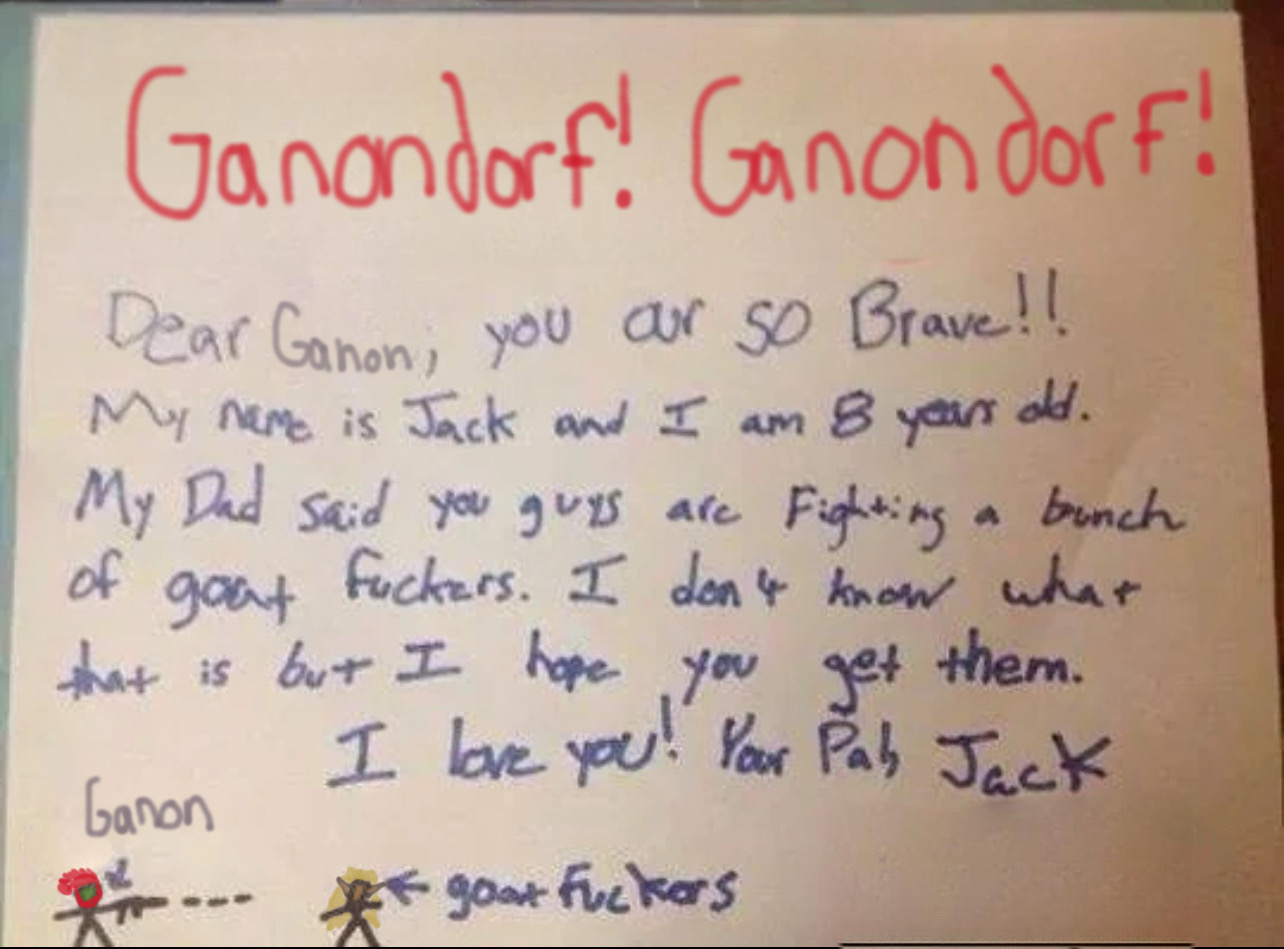 Ganondorf! Ganondorf!
Dear Ganon, you our so Brave!!
My name is Jack and I am 8 years old.
My Dad said you guys are Fighting a bunch
of goat fuckers. I don't know what
that is but I hope you get them.
I love you! Your Pal, Jack
Ganon
goat fuckers